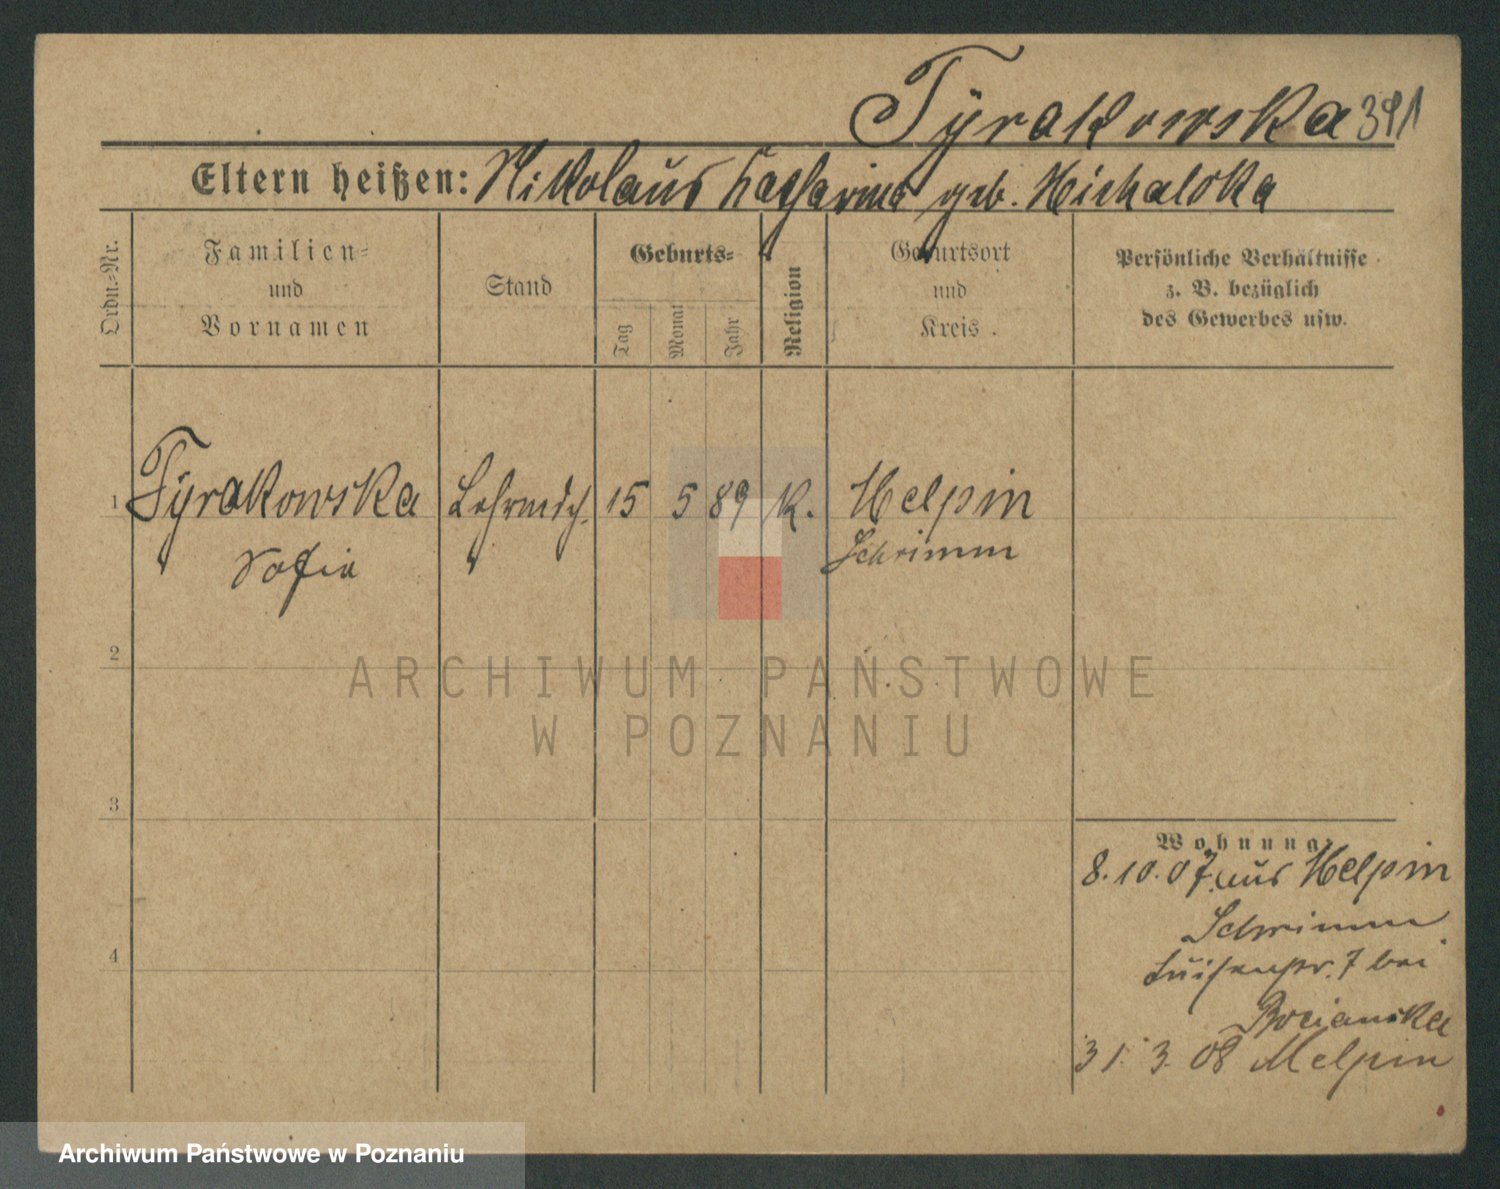 Tyrakowska 391
Eltern heißen: Nikolaus Katharina geb. Michalska
Ordn.-Nr.
Familien-
und
Vornamen
Stand
Geburts-
Tag
Monat
Jahr
Religion
Geburtsort
und
Kreis.
Persönliche Verhältnisse
z. B. bezüglich
des Gewerbes usw.
1 Tyrakowska 15 5 89 K. Melpin
Sofia Schrimm
2
3
4
Wohnung
8.10.07 aus Melpin
Schrimm
Luisenstr. 7 bei
Bocianska
31. 3. 08 Melpin
ARCHIWUM PAŃSTWOWE
W POZNANIU
Archiwum Państwowe w Poznaniu